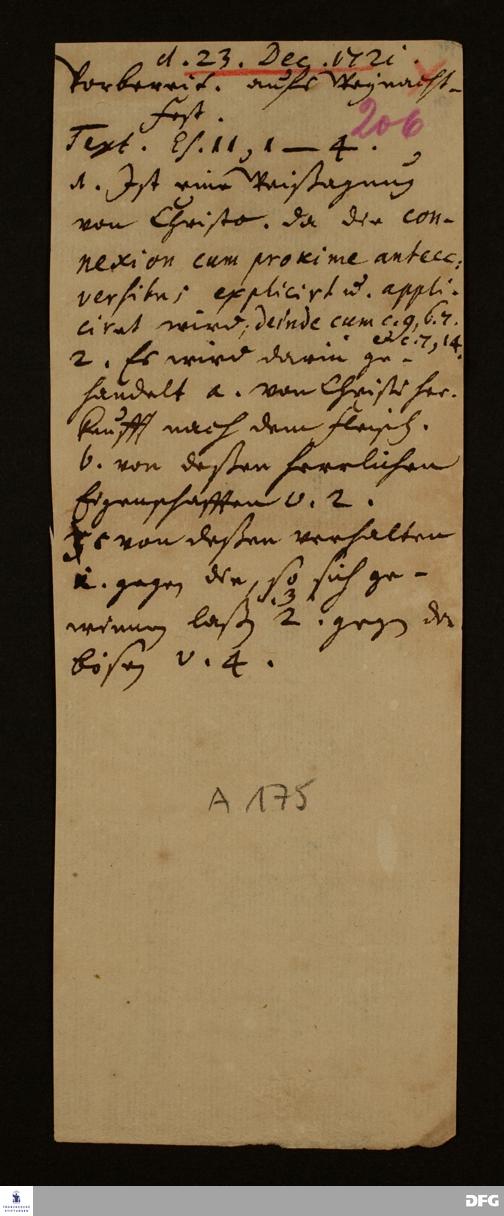 d. 23. Dec. 1721.
Vorbereit. aufs Weynacht-
Fest.
206
Text. Es. 11, 1 — 4.
1. Ist eine Weissagung
von Christo. da die con-
nexion cum proxime antecc:
versibus explicirt u. appli-
cirt wird, deinde cum c. 9, 6. 7.
et c. 7, 14.
2. Es wird darin ge-
handelt a. von Christi her-
kunfft nach dem Fleisch.
b. von deßen herrlichen
Eigenschafften v. 2.
c von deßen verhalten
1. gegen die, so sich ge-
winnen laßen 3 2. gegen die
bösen v. 4.
A 175
FRANCKESCHE
STIFTUNGEN
DFG